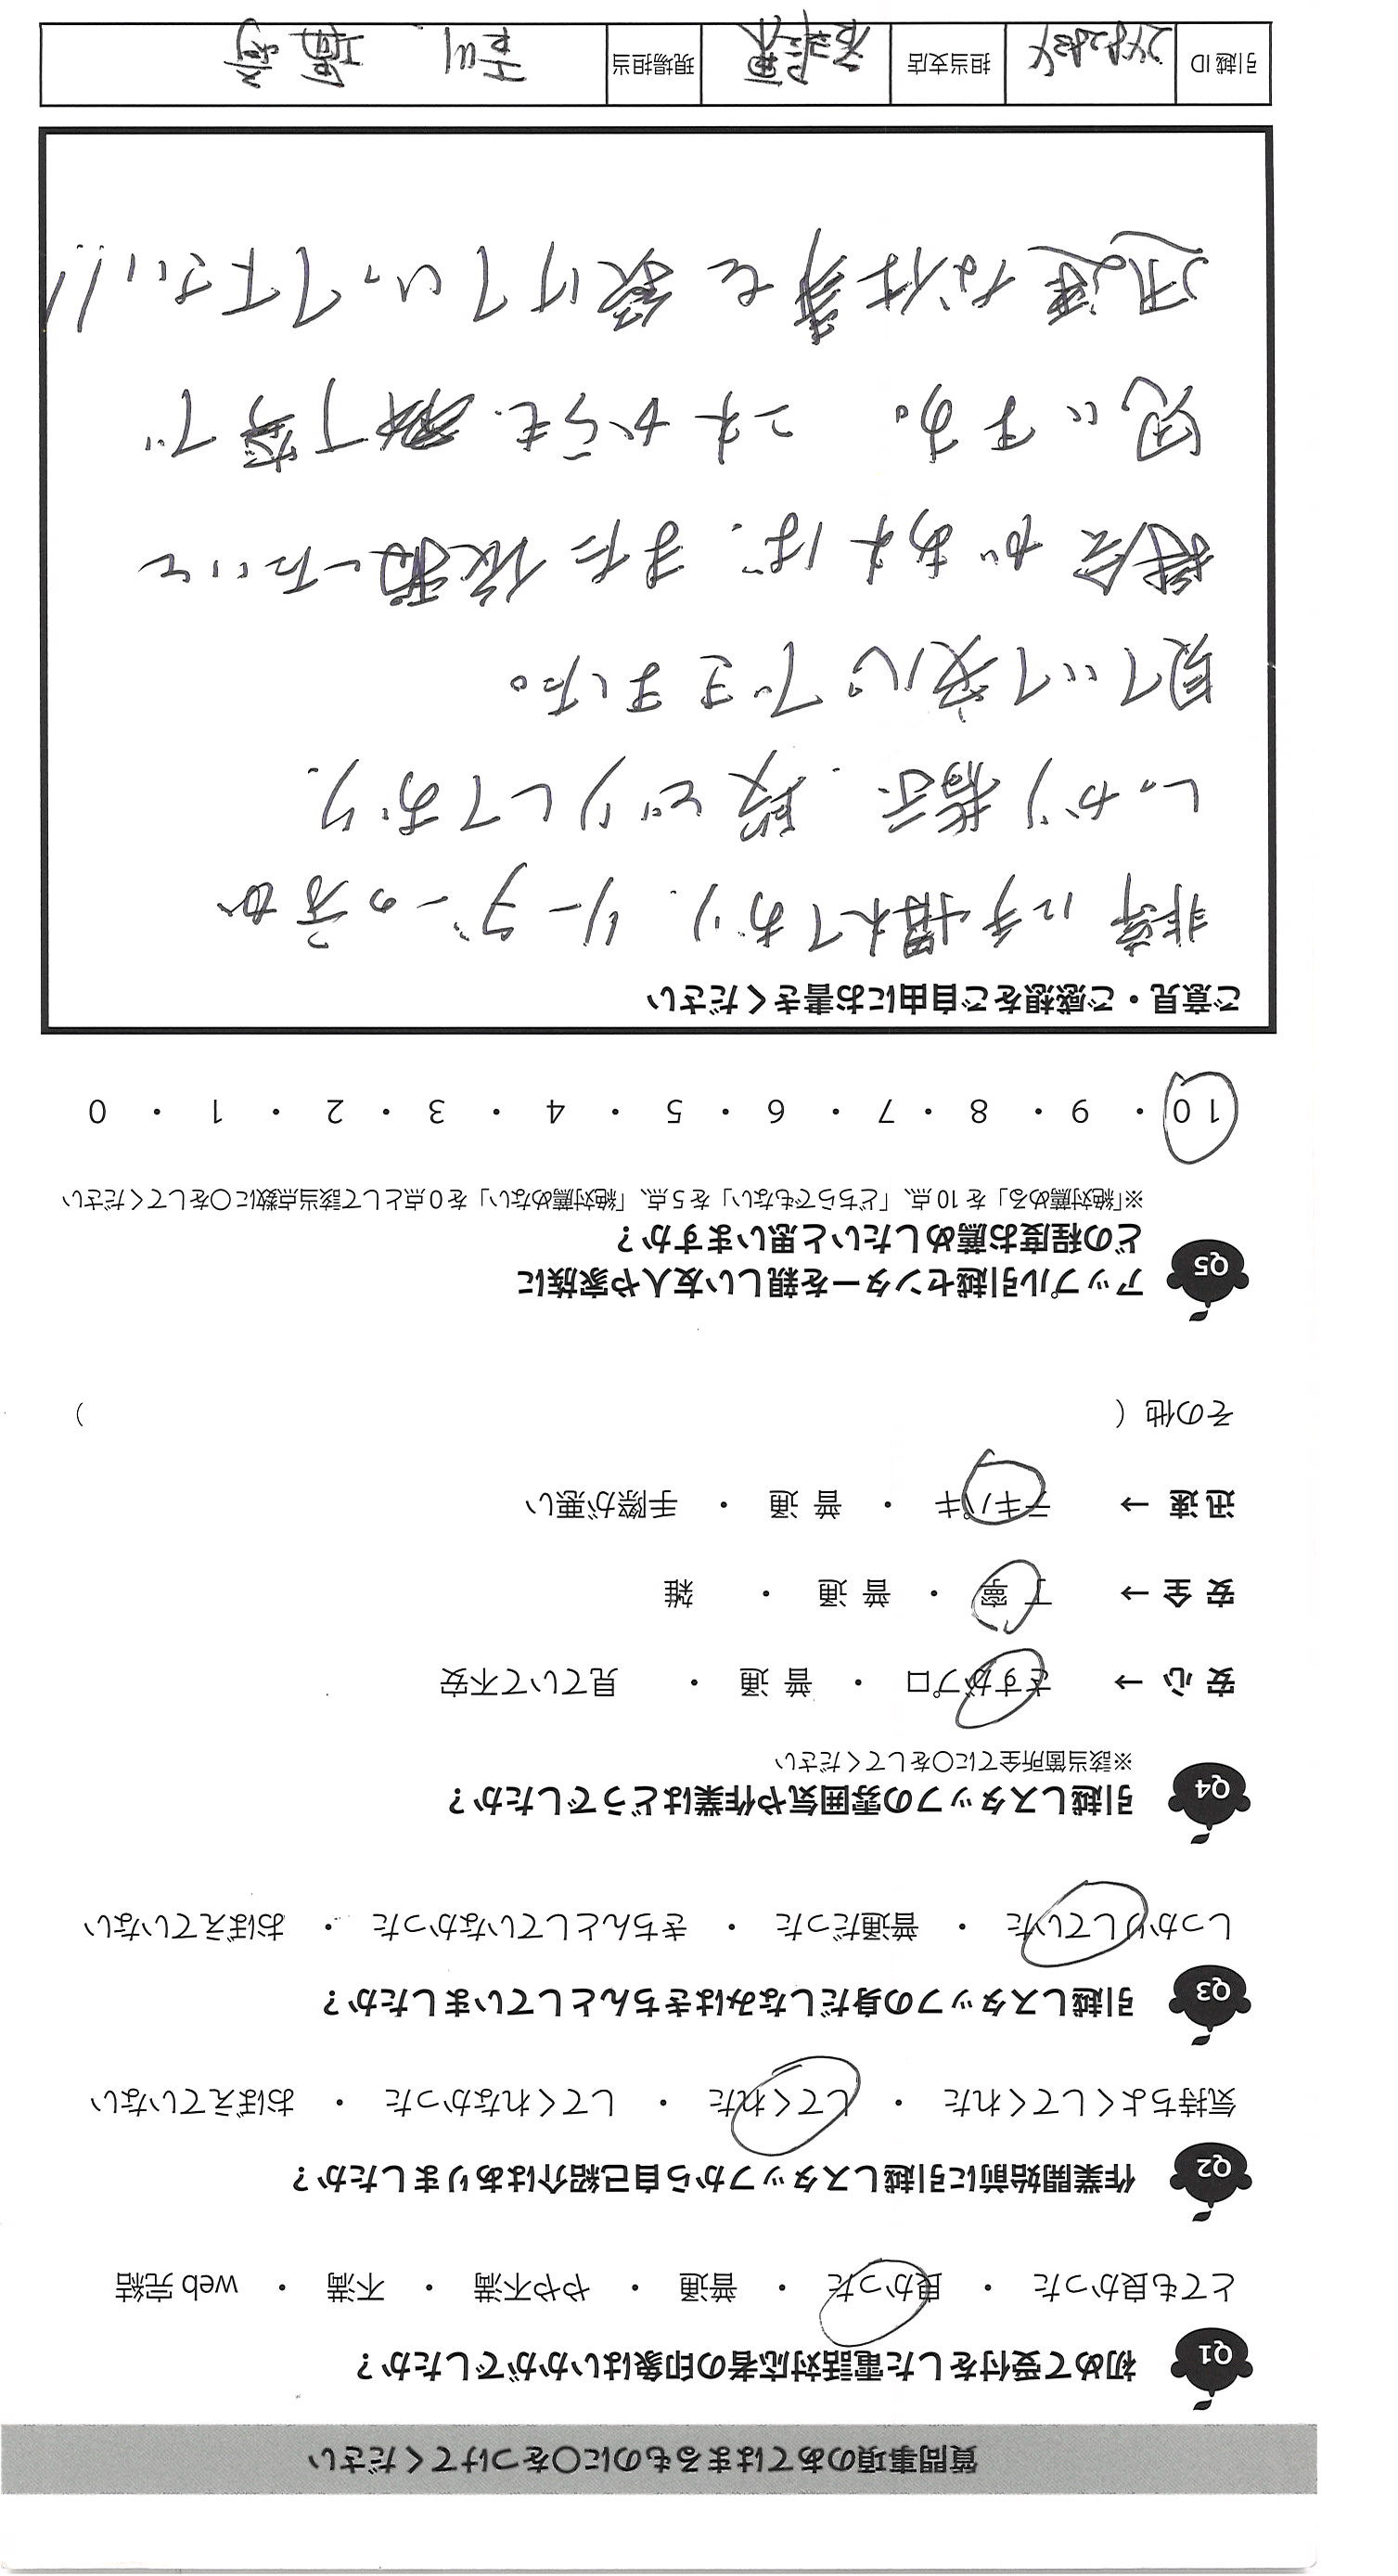 質問事項のあてはまるものに〇をつけてください
Q1 初めて受付をした電話対応者の印象はいかがでしたか？
とても良かった ・ 良かった ・ 普通 ・ やや不満 ・ 不満 ・ web 完結
Q2 作業開始前に引越しスタッフから自己紹介はありましたか？
気持ちよくしてくれた ・ してくれた ・ してくれなかった ・ おぼえていない
Q3 引越しスタッフの身だしなみはきちんとしていましたか？
しっかりしていた ・ 普通だった ・ きちんとしていなかった ・ おぼえていない
Q4 引越しスタッフの雰囲気や作業はどうでしたか？
※該当箇所全てに〇をしてください
安 心 → さすがプロ ・ 普 通 ・ 見ていて不安
安 全 → 丁 寧 ・ 普 通 ・ 雑
迅 速 → テキパキ ・ 普 通 ・ 手際が悪い
その他（ ）
Q5 アップル引越センターを親しい友人や家族に
どの程度お薦めしたいと思いますか？
※「絶対薦める」を 10 点、「どちらでもない」を 5 点、「絶対薦めない」を 0 点として該当点数に〇をしてください
10 ・ 9 ・ 8 ・ 7 ・ 6 ・ 5 ・ 4 ・ 3 ・ 2 ・ 1 ・ 0
ご意見・ご感想をご自由にお書きください
非常に手慣れており、リーダーの方が
しっかり指示、段どりしており、
見ていて安心できました。
機会があれば、また依頼したいと
思います。 これからも、丁寧で
迅速な仕事を続けていって下さい!!
引越 ID 担当支店 現場担当